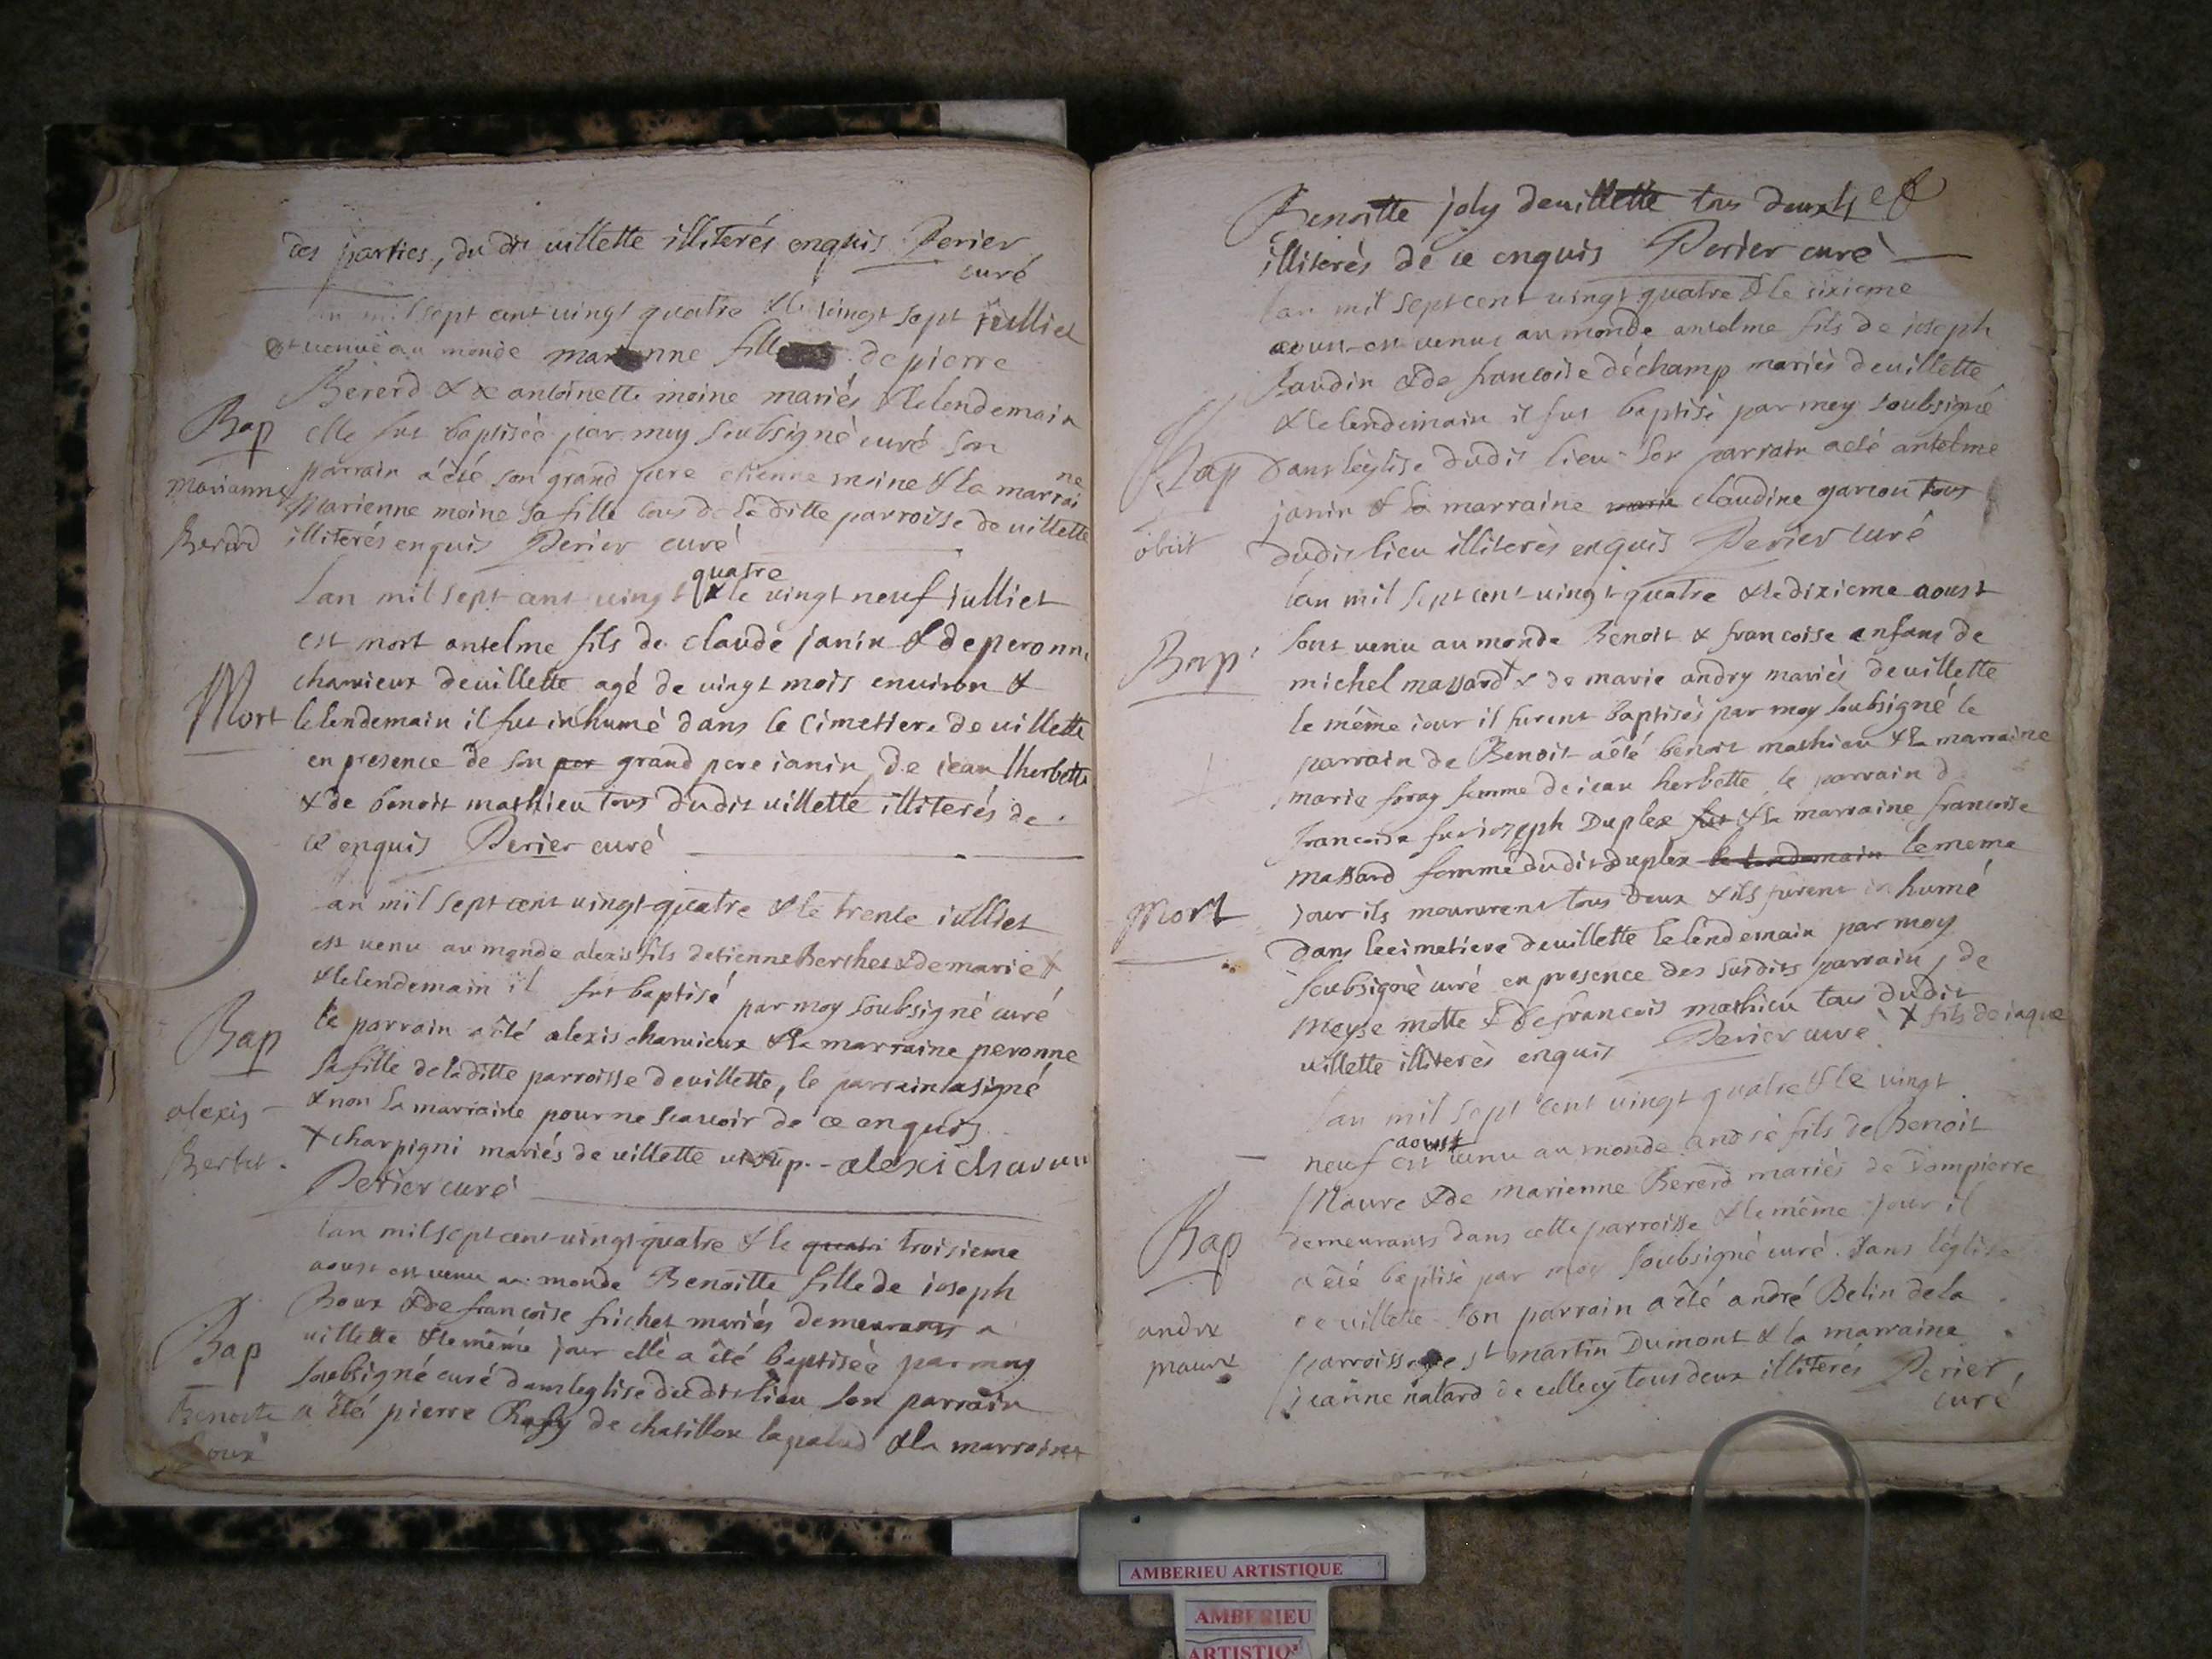 des parties, du dit villette illiterés enquis Perier
curé
lan mil sept cent vingt quatre & le vingt sept juilliet
est venuë au monde marianne fille de pierre
Bererd & de antoinette moine mariés & le lendemain
Bap elle fut baptisée par moy soubsigné curé son
parrain a été son grand pere etienne moine & la marraine
marianne marienne moine sa fille tous de la ditte parroisse de villette
Berard illiterés enquis Perier curé
lan mil sept cent vingt quatre & le vingt neuf julliet
est mort antelme fils de claude janin & de peronne
charvieux de villette agé de vingt mois environ &
Mort le lendemain il fut inhumé dans le cimetiere de villette
en presence de son per grand pere janin, de jean lherbette
& de benoit mathieu tous dudit villette illiterés de
ce enquis Perier curé
lan mil sept cent vingt quatre & le trente iulliet
est venu au monde alexis fils detienne Berthet & de marie x
& le lendemain il fut baptisé par moy soubsigné curé
Bap le parrain a été alexis charvieux & la marraine peronne
sa fille de la ditte parroisse de villette, le parrain a signé
alexis & non la marraine pour ne scavoir de ce enquis
Bertet. x charpigni mariés de villette ut sup. - alexi charvieu
Perier curé
lan mil sept cent vingt quatre & le quatri troisieme
aoust est venu au monde Benoitte fille de ioseph
Roux & de françoise frichet mariés demeurants a
Bap villette & le même jour elle a été baptisée par moy
soubsigné curé dans leglise dudit lieu son parrain
Benoite a été pierre de chatillon lapalud & la marraine
Roux
Benoitte joly de villette tous deux
illiterés de ce enquis Perier curé
lan mil sept cent vingt quatre & le sixieme
aoust est venu au monde antelme fils de ioseph
baudin & de francoise déchamp mariés de villette
& le lendemain il fut baptisé par moy soubsigné
Bap dans léglise dudit lieu son parrain a été antelme
janin & la marraine marie claudine garcon tous
obiit dudit lieu illiterés enquis Perier curé
lan mil sept cent vingt quatre & le dixieme aoust
Bap. sont venu au monde Benoit & francoise enfans de
michel massard x & de marie andry mariés de villette
le même iour il furent baptisés par moy soubsigné le
parrain de Benoit a été benoit mathieu & la marraine
marie foray femme de iean herbette, le parrain d
francoise fut ioseph Duplex fut & la marraine francoise
massard femme dudit duplex le lendemain le meme
Mort jour ils moururent tous deux & ils furent inhumé
dans le cimetiere de villette le lendemain par moy
soubsigné curé en presence des susdits parrain, de
meyse motte & de francois mathieu tous dudit
villette illiterés enquis Perier curé x fils de iaque
lan mil sept cent vingt quatre & le vingt
neuf aoust est venu au monde andré fils de Benoit
Maure & de marienne Bererd mariés de Dompierre
Bap demeurants dans cette parroisse & le même jour il
a été baptisé par moy soubsigné curé dans léglise
de villette son parrain a été andré Belin de la
andre parroisse de st martin Dumont & la marraine
maure jeanne nalard de tous deux illiterés Perier
curé
AMBERIEU ARTISTIQUE
AMBERIEU
ARTISTIQ